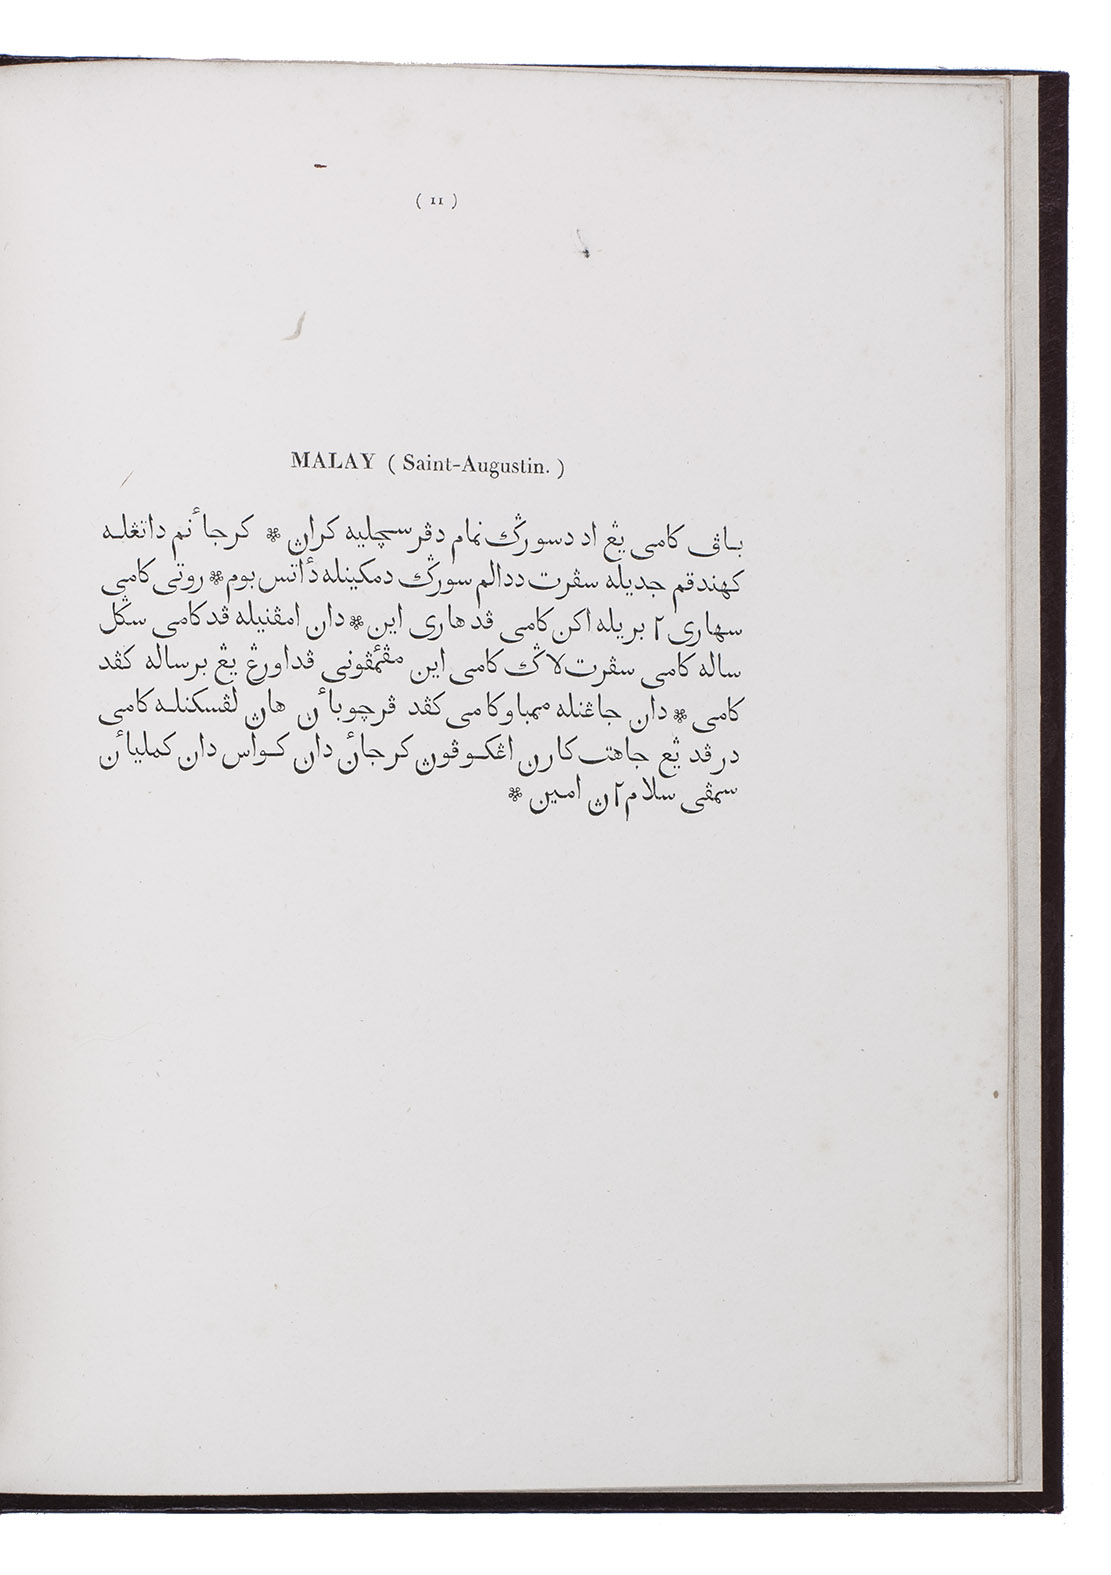 ( 11 )
MALAY ( Saint-Augustin. )
باڤ كامي يڠ اد دسورݢ نمام دڤرسچليه كران ❊ كرجاٴنم داتڠله
كهندقم جديله سڤرت ددالم سورݢ دمكينله دٴاتس بوم ❊ روتي كامي
سهاري ٢ بريله اكن كامي ڤد هاري اين ❊ دان امڤنيله ڤد كامي سݢل
ساله كامي سڤرت لاݢ كامي اين مڤٴمڤوني ڤداورڠ يڠ برساله كڤد
كامي ❊ دان جاڠنله ممباوكامي كڤد ڤرچوباٴن هان لڤسكنله كامي
درڤد يڠ جاهت كارن اڠكوڤون كرجاٴن دان كواس دان كملياٴن
سمڤي سلام٢ن امين ❊